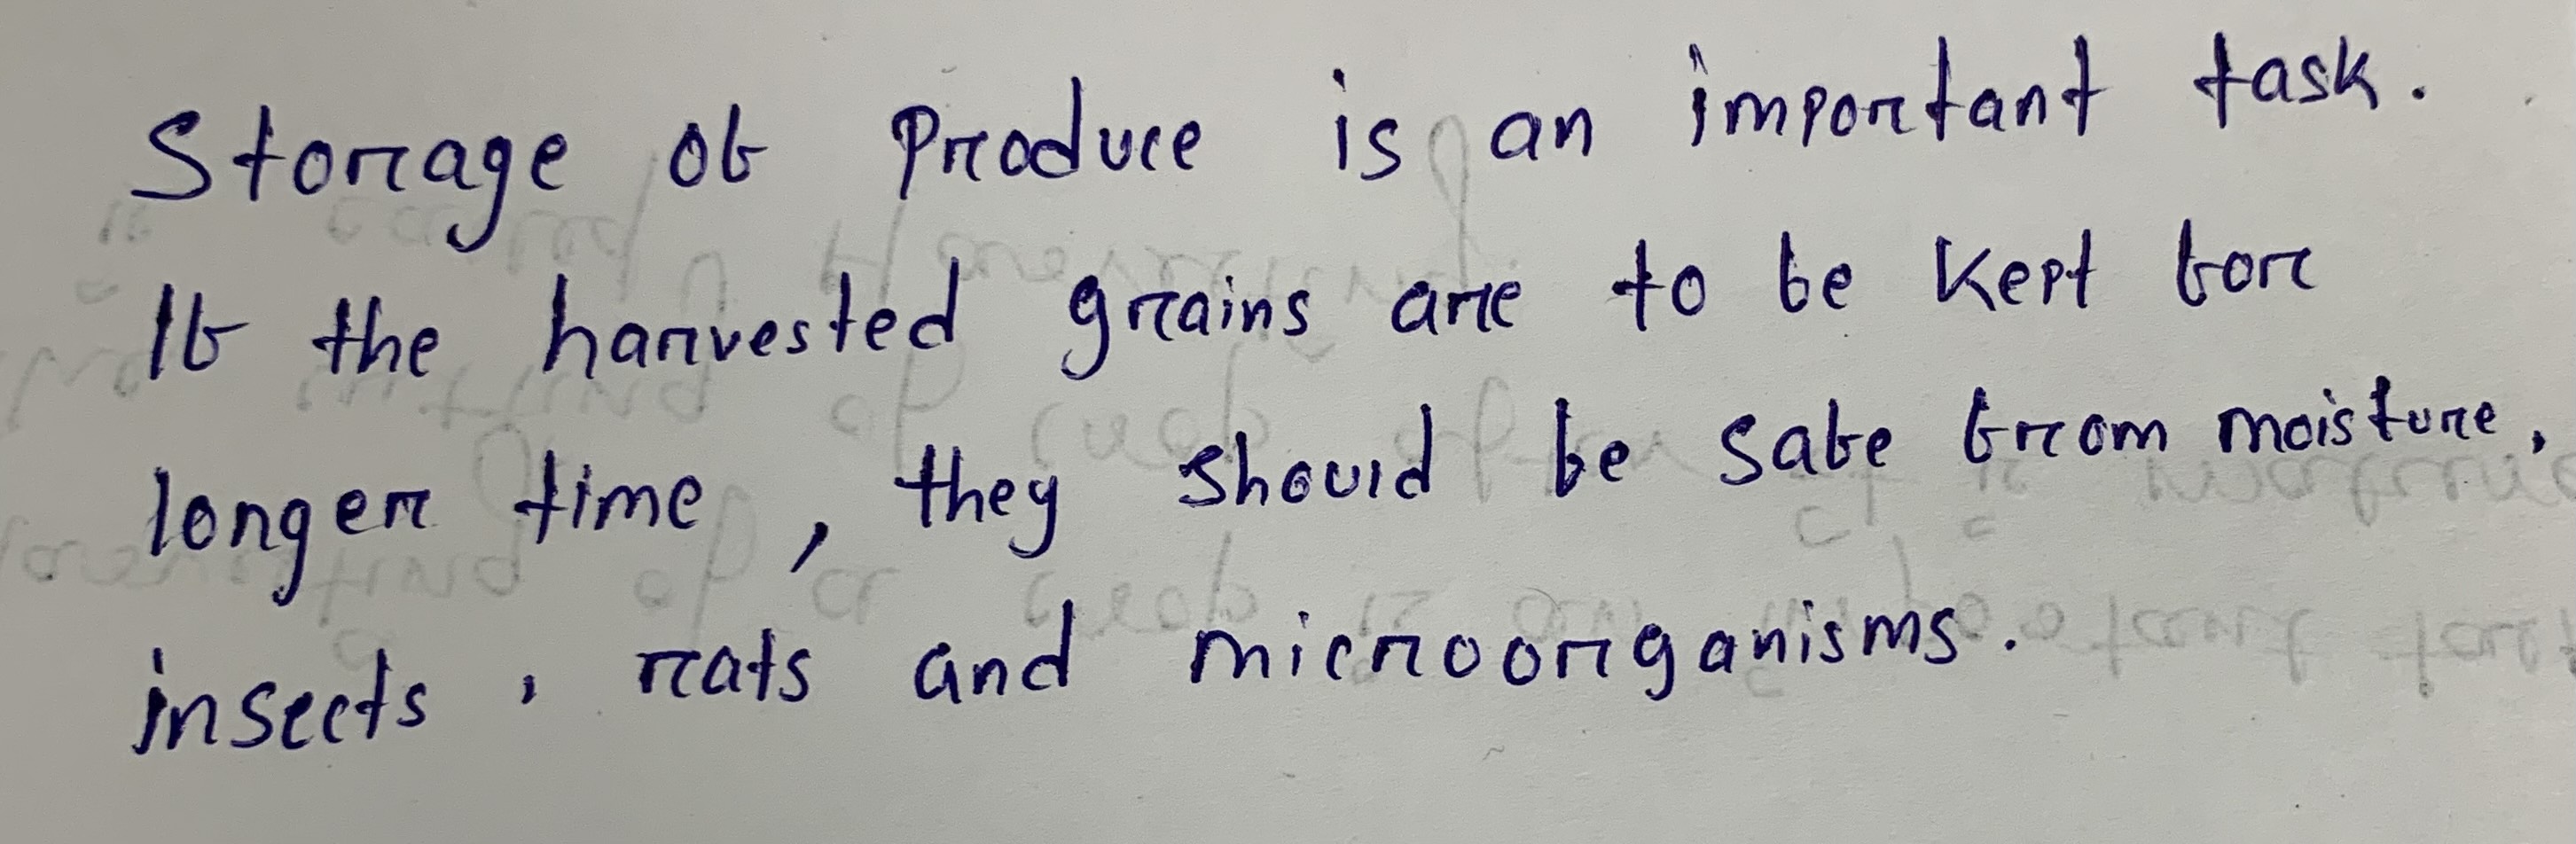 Storage of produce is an important task.
If the harvested grains are to be kept for
longer time, they should be safe from moisture,
insects, rats and microorganisms.